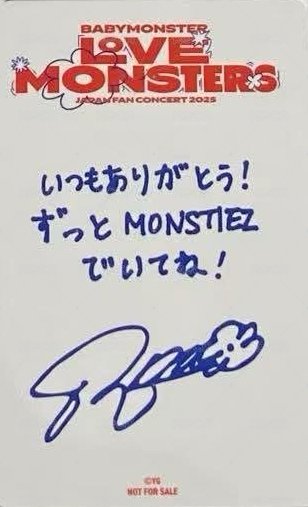 BABYMONSTER
LOVE
MONSTERS
JAPAN FAN CONCERT 2025
いつもありがとう!
ずっと MONSTIEZ
でいてね!
©YG
NOT FOR SALE